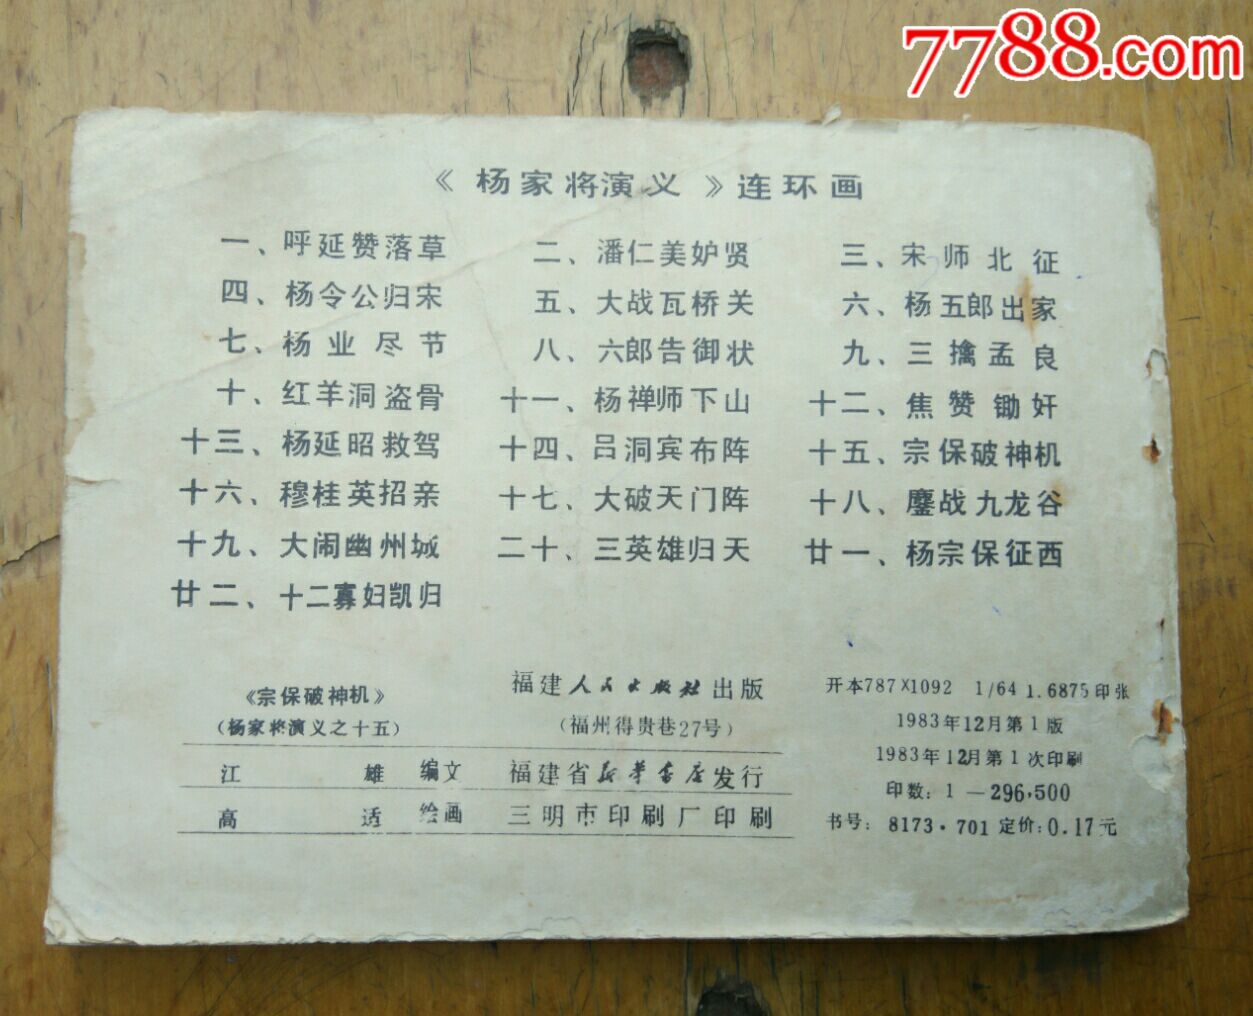 7788.com
《杨家将演义》连环画
一、呼延赞落草 二、潘仁美妒贤 三、宋师北征
四、杨令公归宋 五、大战瓦桥关 六、杨五郎出家
七、杨业尽节 八、六郎告御状 九、三擒孟良
十、红羊洞盗骨 十一、杨禅师下山 十二、焦赞锄奸
十三、杨延昭救驾 十四、吕洞宾布阵 十五、宗保破神机
十六、穆桂英招亲 十七、大破天门阵 十八、鏖战九龙谷
十九、大闹幽州城 二十、三英雄归天 廿一、杨宗保征西
廿二、十二寡妇凯归
《宗保破神机》
(杨家将演义之十五)
江雄 编文
高适 绘画
福建人民出版社出版
(福州得贵巷27号)
福建省新华书店发行
三明市印刷厂印刷
开本787×1092 1/64 1.6875印张
1983年12月第1版
1983年12月第1次印刷
印数:1—296,500
书号:8173·701 定价:0.17元